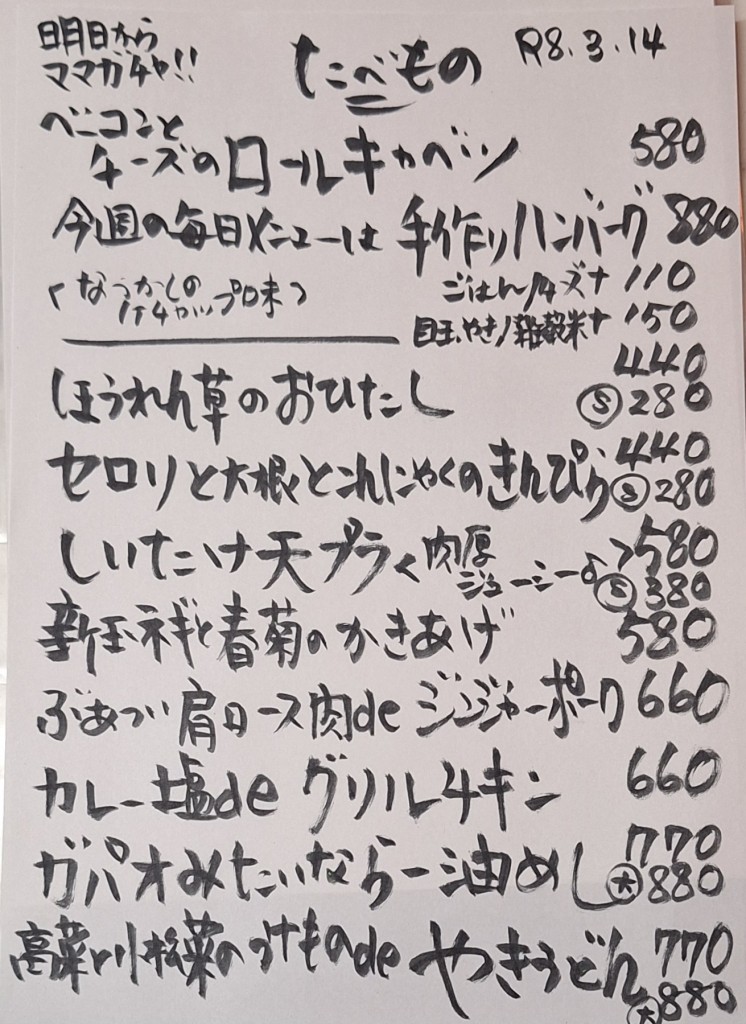 明日から
ママガチャ!!
たべもの
R8.3.14
ベーコンと
チーズのロールキャベツ 580
今週の毎日メニューは 手作りハンバーグ 880
(なつかしの
ケチャップ味)
ごはん/チーズ+ 110
目玉やき/雑穀米+ 150
ほうれん草のおひたし 440
Ⓢ280
セロリと大根とこんにゃくのきんぴら 440
Ⓢ280
しいたけ天プラ<肉厚ジューシー♪> 580
Ⓢ380
新玉ネギと春菊のかきあげ 580
ぶあつい肩ロース肉de ジンジャーポーク 660
カレー塩de グリルチキン 660
ガパオみたいならー油めし 770
大880
高菜と小松菜のつけものde やきうどん 770
大880